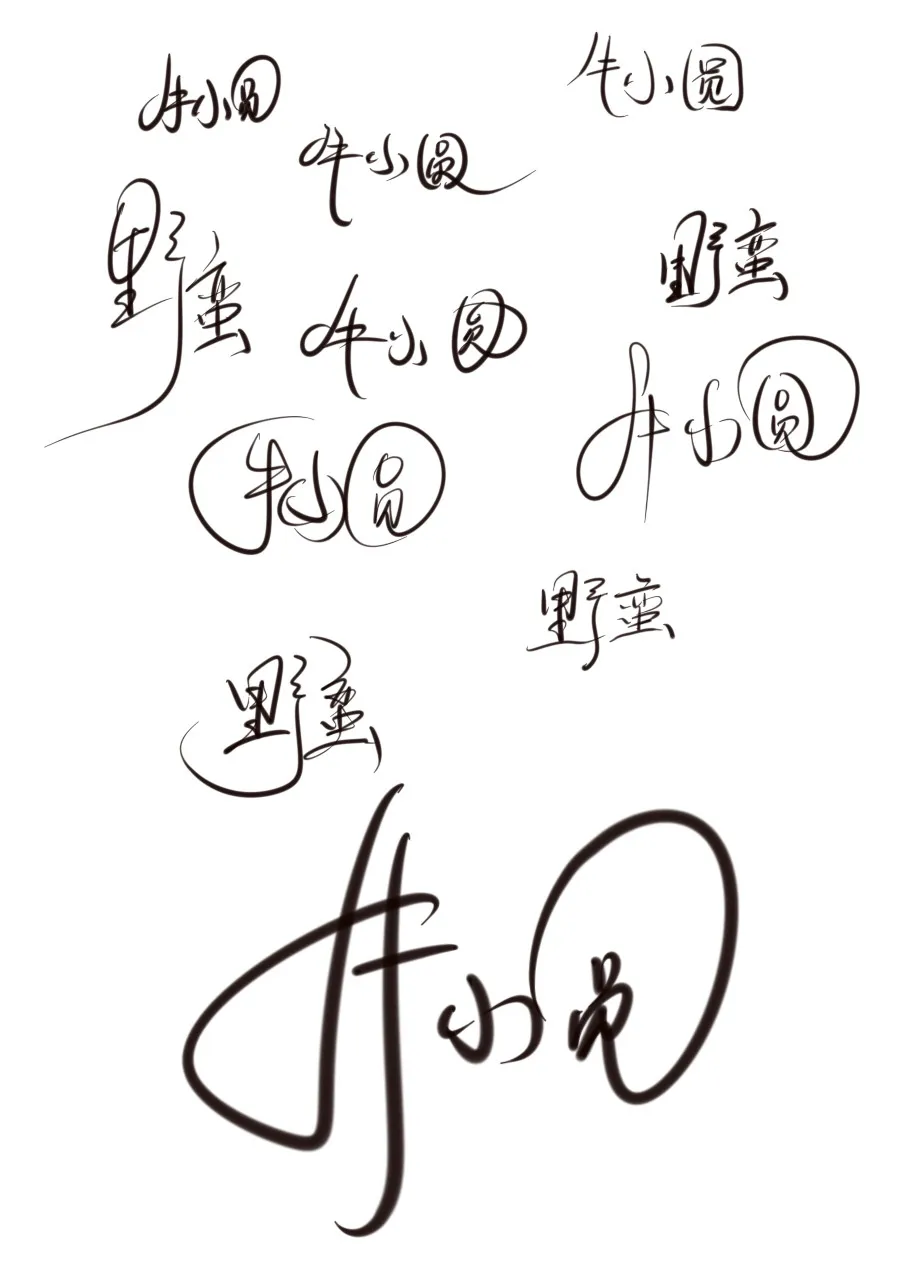 牛小圆
牛小圆
牛小圆
野蛮
野蛮
牛小圆
牛小圆
牛小圆
野蛮
野蛮
牛小圆